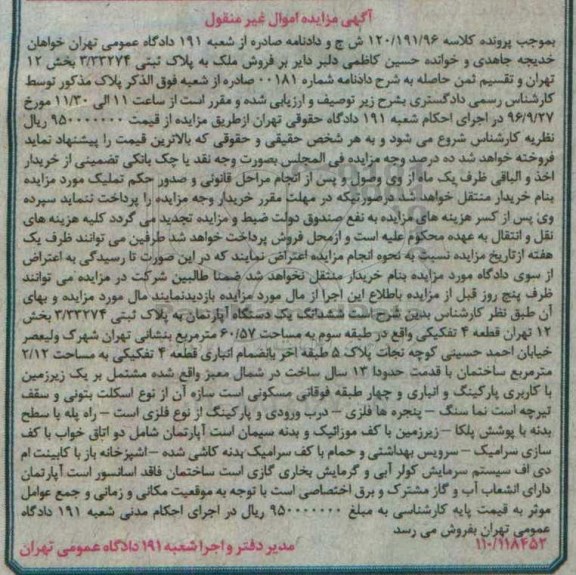 آگهی مزایده اموال غیر منقول
بموجب پرونده کلاسه ۱۲۰/۱۹۱/۹۶ ش ج و دادنامه صادره از شعبه ۱۹۱ دادگاه عمومی تهران خواهان
خدیجه جاهدی و خوانده حسین کاظمی دلبر دایر بر فروش ملک به پلاک ثبتی ۳/۳۳۲۷۴ بخش ۱۲
تهران و تقسیم ثمن حاصله به شرح دادنامه شماره ۰۰۱۸۱ صادره از شعبه فوق الذکر پلاک مذکور توسط
کارشناس رسمی دادگستری بشرح زیر توصیف و ارزیابی شده و مقرر است از ساعت ۱۱ الی ۱۱/۳۰ مورخ
۹۶/۹/۲۷ در اجرای احکام شعبه ۱۹۱ دادگاه حقوقی تهران ازطریق مزایده از قیمت ۹۵۰۰۰۰۰۰۰ ریال
نظریه کارشناس شروع می شود و به هر شخص حقیقی و حقوقی که بالاترین قیمت را پیشنهاد نماید
فروخته خواهد شد ده درصد وجه مزایده فی المجلس بصورت وجه نقد یا چک بانکی تضمینی از خریدار
اخذ و الباقی ظرف یک ماه از وی وصول و پس از انجام مراحل قانونی و صدور حکم تملیک مورد مزایده
بنام خریدار منتقل خواهد شد درصورتیکه در مهلت مقرر خریدار وجه مزایده را پرداخت ننماید سپرده
وی پس از کسر هزینه های مزایده به نفع صندوق دولت ضبط و مزایده تجدید می گردد کلیه هزینه های
نقل و انتقال به عهده محکوم علیه است و ازمحل فروش پرداخت خواهد شد طرفین می توانند ظرف یک
هفته ازتاریخ مزایده نسبت به نحوه انجام مزایده اعتراض نمایند که در این صورت تا رسیدگی به اعتراض
از سوی دادگاه مورد مزایده بنام خریدار منتقل نخواهد شد ضمنا طالبین شرکت در مزایده می توانند
ظرف پنج روز قبل از مزایده باطلاع این اجرا از مال مورد مزایده بازدیدنمایند مال مورد مزایده و بهای
آن طبق نظر کارشناس بدین شرح است ششدانگ یک دستگاه آپارتمان به پلاک ثبتی ۳/۳۳۲۷۴ بخش
۱۲ تهران قطعه ۴ تفکیکی واقع در طبقه سوم به مساحت ۶۰/۵۷ مترمربع بنشانی تهران شهرک ولیعصر
خیابان احمد حسینی کوچه نجات پلاک ۵ طبقه آخر بانضمام انباری قطعه ۴ تفکیکی به مساحت ۲/۱۲
مترمربع ساختمان با قدمت حدودا ۱۳ سال ساخت در شمال معبر واقع شده مشتمل بر یک زیرزمین
با کاربری پارکینگ و انباری و چهار طبقه فوقانی مسکونی است سازه آن از نوع اسکلت بتونی و سقف
تیرچه است نما سنگ – پنجره ها فلزی – درب ورودی و پارکینگ از نوع فلزی است – راه پله پا سطح
بدنه با پوشش پلکا – زیرزمین با کف موزائیک و بدنه سیمان است آپارتمان شامل دو اتاق خواب با کف
سازی سرامیک – سرویس بهداشتی و حمام با کف سرامیک بدنه کاشی شده – اشپزخانه باز با کابینت ام
دی اف سیستم سرمایش کولر آبی و گرمایش بخاری گازی است ساختمان فاقد اسانسور است آپارتمان
دارای انشعاب آب و گاز مشترک و برق اختصاصی است با توجه به موقعیت مکانی و زمانی و جمع عوامل
موثر به قیمت پایه کارشناسی به مبلغ ۹۵۰۰۰۰۰۰۰ ریال در اجرای احکام مدنی شعبه ۱۹۱ دادگاه
عمومی تهران بفروش می رسد
۱۱۰/۱۱۸۴۵۳ مدیر دفتر و اجرا شعبه ۱۹۱ دادگاه عمومی تهران